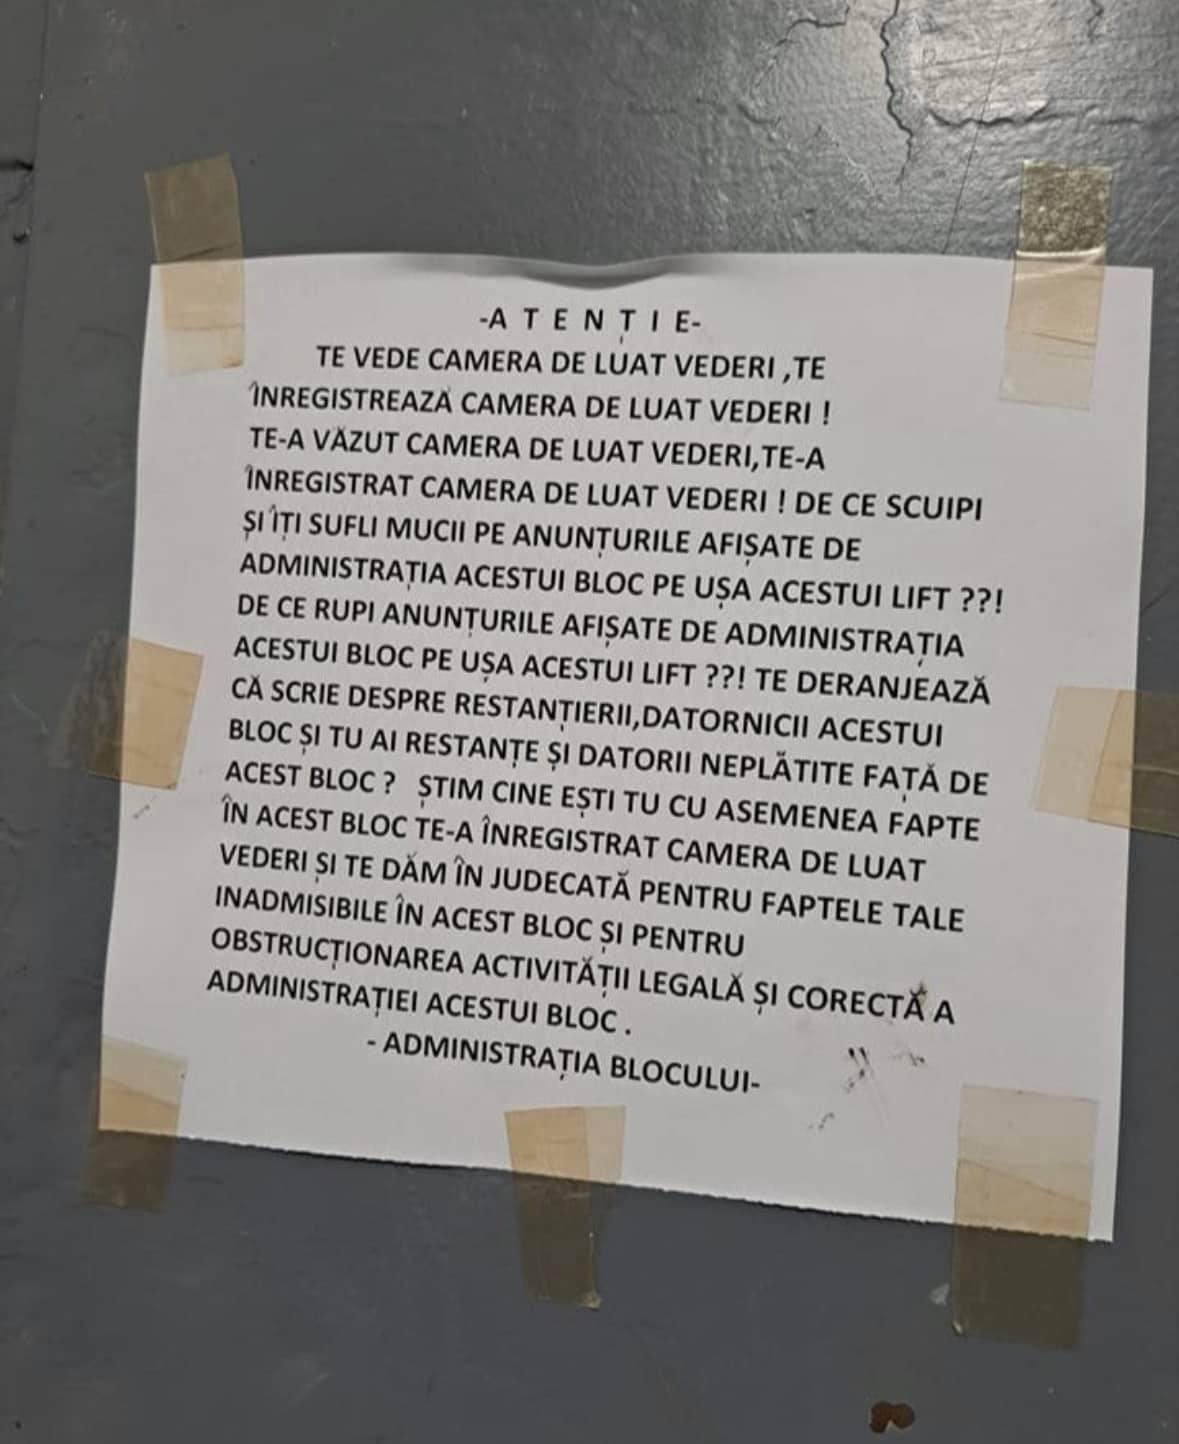 -A T E N Ț I E-
TE VEDE CAMERA DE LUAT VEDERI ,TE
ÎNREGISTREAZĂ CAMERA DE LUAT VEDERI !
TE-A VĂZUT CAMERA DE LUAT VEDERI,TE-A
ÎNREGISTRAT CAMERA DE LUAT VEDERI ! DE CE SCUIPI
ȘI ÎȚI SUFLI MUCII PE ANUNȚURILE AFIȘATE DE
ADMINISTRAȚIA ACESTUI BLOC PE UȘA ACESTUI LIFT ??!
DE CE RUPI ANUNȚURILE AFIȘATE DE ADMINISTRAȚIA
ACESTUI BLOC PE UȘA ACESTUI LIFT ??! TE DERANJEAZĂ
CĂ SCRIE DESPRE RESTANȚIERII,DATORNICII ACESTUI
BLOC ȘI TU AI RESTANȚE ȘI DATORII NEPLĂTITE FAȚĂ DE
ACEST BLOC ? ȘTIM CINE EȘTI TU CU ASEMENEA FAPTE
ÎN ACEST BLOC TE-A ÎNREGISTRAT CAMERA DE LUAT
VEDERI ȘI TE DĂM ÎN JUDECATĂ PENTRU FAPTELE TALE
INADMISIBILE ÎN ACEST BLOC ȘI PENTRU
OBSTRUCȚIONAREA ACTIVITĂȚII LEGALĂ ȘI CORECTĂ A
ADMINISTRAȚIEI ACESTUI BLOC .
- ADMINISTRAȚIA BLOCULUI-